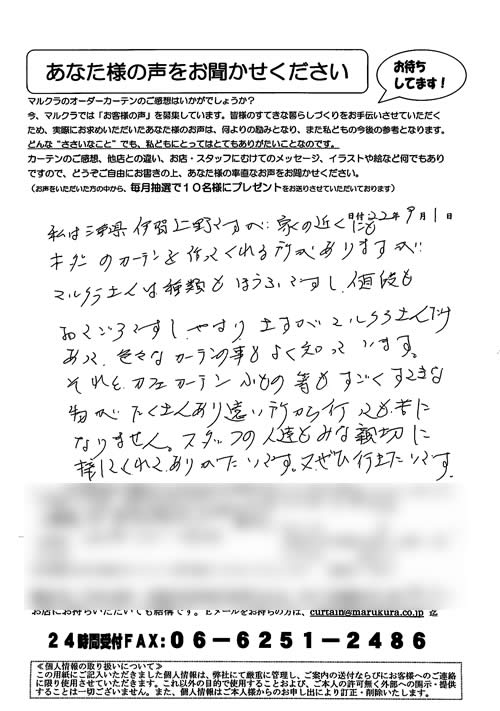 あなた様の声をお聞かせください
お待ち
してます！
マルクラのオーダーカーテンのご感想はいかがでしょうか？
今、マルクラでは「お客様の声」を募集しています。皆様のすてきな暮らしづくりをお手伝いさせていただく
ため、実際にお求めいただいたあなた様のお声は、何よりの励みとなり、また私どもの今後の参考となります。
どんな“ささいなこと”でも、私どもにとってはとてもありがたいことなのです。
カーテンのご感想、他店との違い、お店・スタッフにむけてのメッセージ、イラストや絵など何でもあり
ますので、どうぞご自由にお書きの上、あなた様の率直なお声をお聞かせください。
（お声をいただいた方の中から、毎月抽選で１０名様にプレゼントをお送りさせていただいております）
日付22年9月1日
私は三重県伊賀上野ですが、家の近くにも
キヂのカーテンを作ってくれる所がありますが
マルクラさんは種類もほうふですし、値段も
おてごろですし、やはりさすがマルクラさんだけ
あって、色々なカーテンの事もよく知っています。
それと、カフェカーテンふもの等もすごくすてきな
物がたくさんあり遠い所から行っても苦に
なりません。スタッフの人達もみな親切に
接してくれてありがたいです。又ぜひ行きたいです。
お店にお持ちいただいても結構です。Ｅメールをお持ちの方は、curtain@marukura.co.jp 迄
２４時間受付ＦＡＸ：０６－６２５１－２４８６
≪個人情報の取り扱いについて≫
この用紙にご記入いただきました個人情報は、弊社にて厳重に管理し、ご案内の送付ならびにお客様へのご連絡
に限り使用させていただきます。これ以外の目的で使用することおよび、ご本人の許可無く外部への開示・提供
することは一切ございません。また、個人情報はご本人様からのお申し出により訂正・削除いたします。